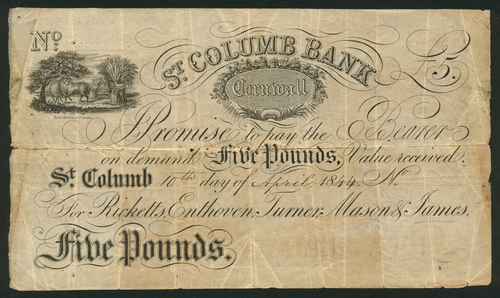 No
ST. COLUMB BANK
£5.
Cornwall
I Promise to pay the Bearer
on demand Five Pounds, Value received:
St Columb 10th day of April 1844. N.
For Ricketts, Enthoven, Turner, Mason & James.
Five Pounds.